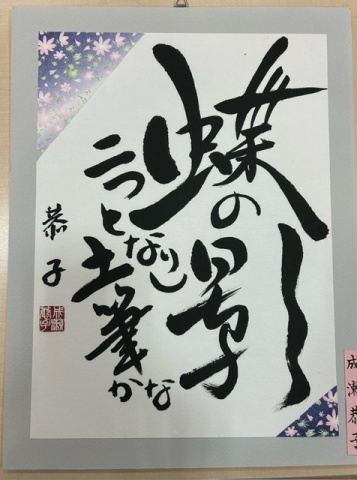 蝶の影
二つとなりし
土筆かな
恭子
成瀬恭子